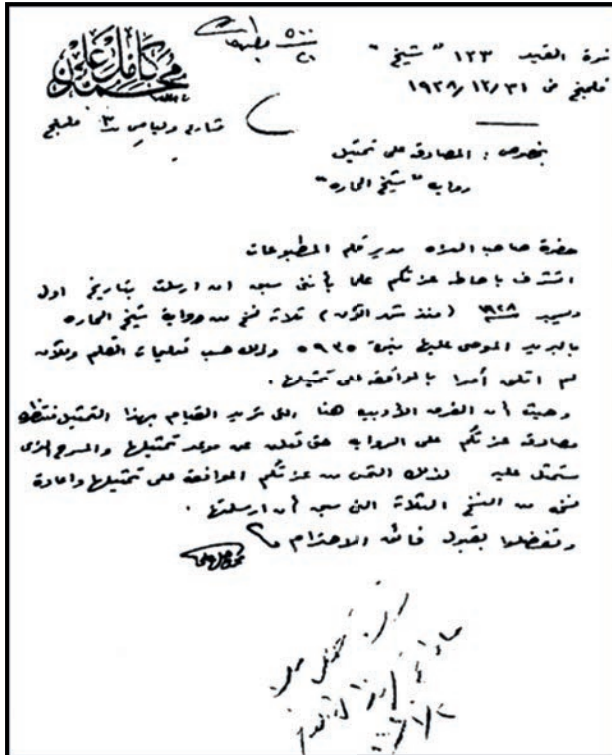 محمد كامل علي
٥٠٠
نمرة القيد ١٢٣ "شيخ"
في ٣١/١٢/١٩٢٨
شارع نمرة ٣
بخصوص : المصادقة على تمثيل
رواية "شيخ الحاره"
حضرة صاحب العزه مدير قلم المطبوعات
اتشرف باحاطة عزتكم علما بأننى سبق ان ارسلت بتاريخ اول
ديسمبر ١٩٢٨ (منذ شهر الآن) ثلاثة نسخ من رواية شيخ الحاره
بالبريد الموصى عليها بنمرة ٥٩٣٥ وذلك حسب تعليمات القلم وللآن
لم اتلق أمرا بالموافقه على تمثيلها .
وحيث أن الفرق الأدبيه هنا التى تريد القيام بهذا التمثيل تنتظر
مصادقة عزتكم على الروايه حتى تعلن عن موعد تمثيلها والمسرح الذى
ستمثل عليه لذلك التمس من عزتكم الموافقة على تمثيلها واعادة
نسخه من النسخ الثلاثة التى سبق أن ارسلتها .
وتفضلوا بقبول فائق الاحترام